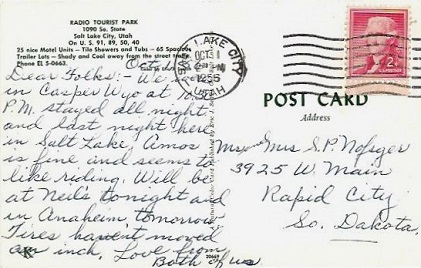 RADIO TOURIST PARK
1090 So. State
Salt Lake City, Utah
On U. S. 91, 89, 50, 40
25 nice Motel Units - Tile Showers and Tubs - 65 Spacious
Trailer Lots - Shady and Cool away from the street
Phone EL 5-0663.
Oct.
Dear Folks:- We
in Casper Wyo at
P.M. stayed all night
and last night here
in Salt Lake. Amos
is fine and seems to
like riding. Will be
at Neil's tonight and
in Anaheim tomorrow.
Tires haven't moved
an inch. Love from
Both of us
SALT LAKE CITY
OCT 31
PM
1956
UTAH
2¢
POST CARD
Address
Mr. & Mrs S.P. Nofsger
3925 W. Main
Rapid City
So. Dakota.
K